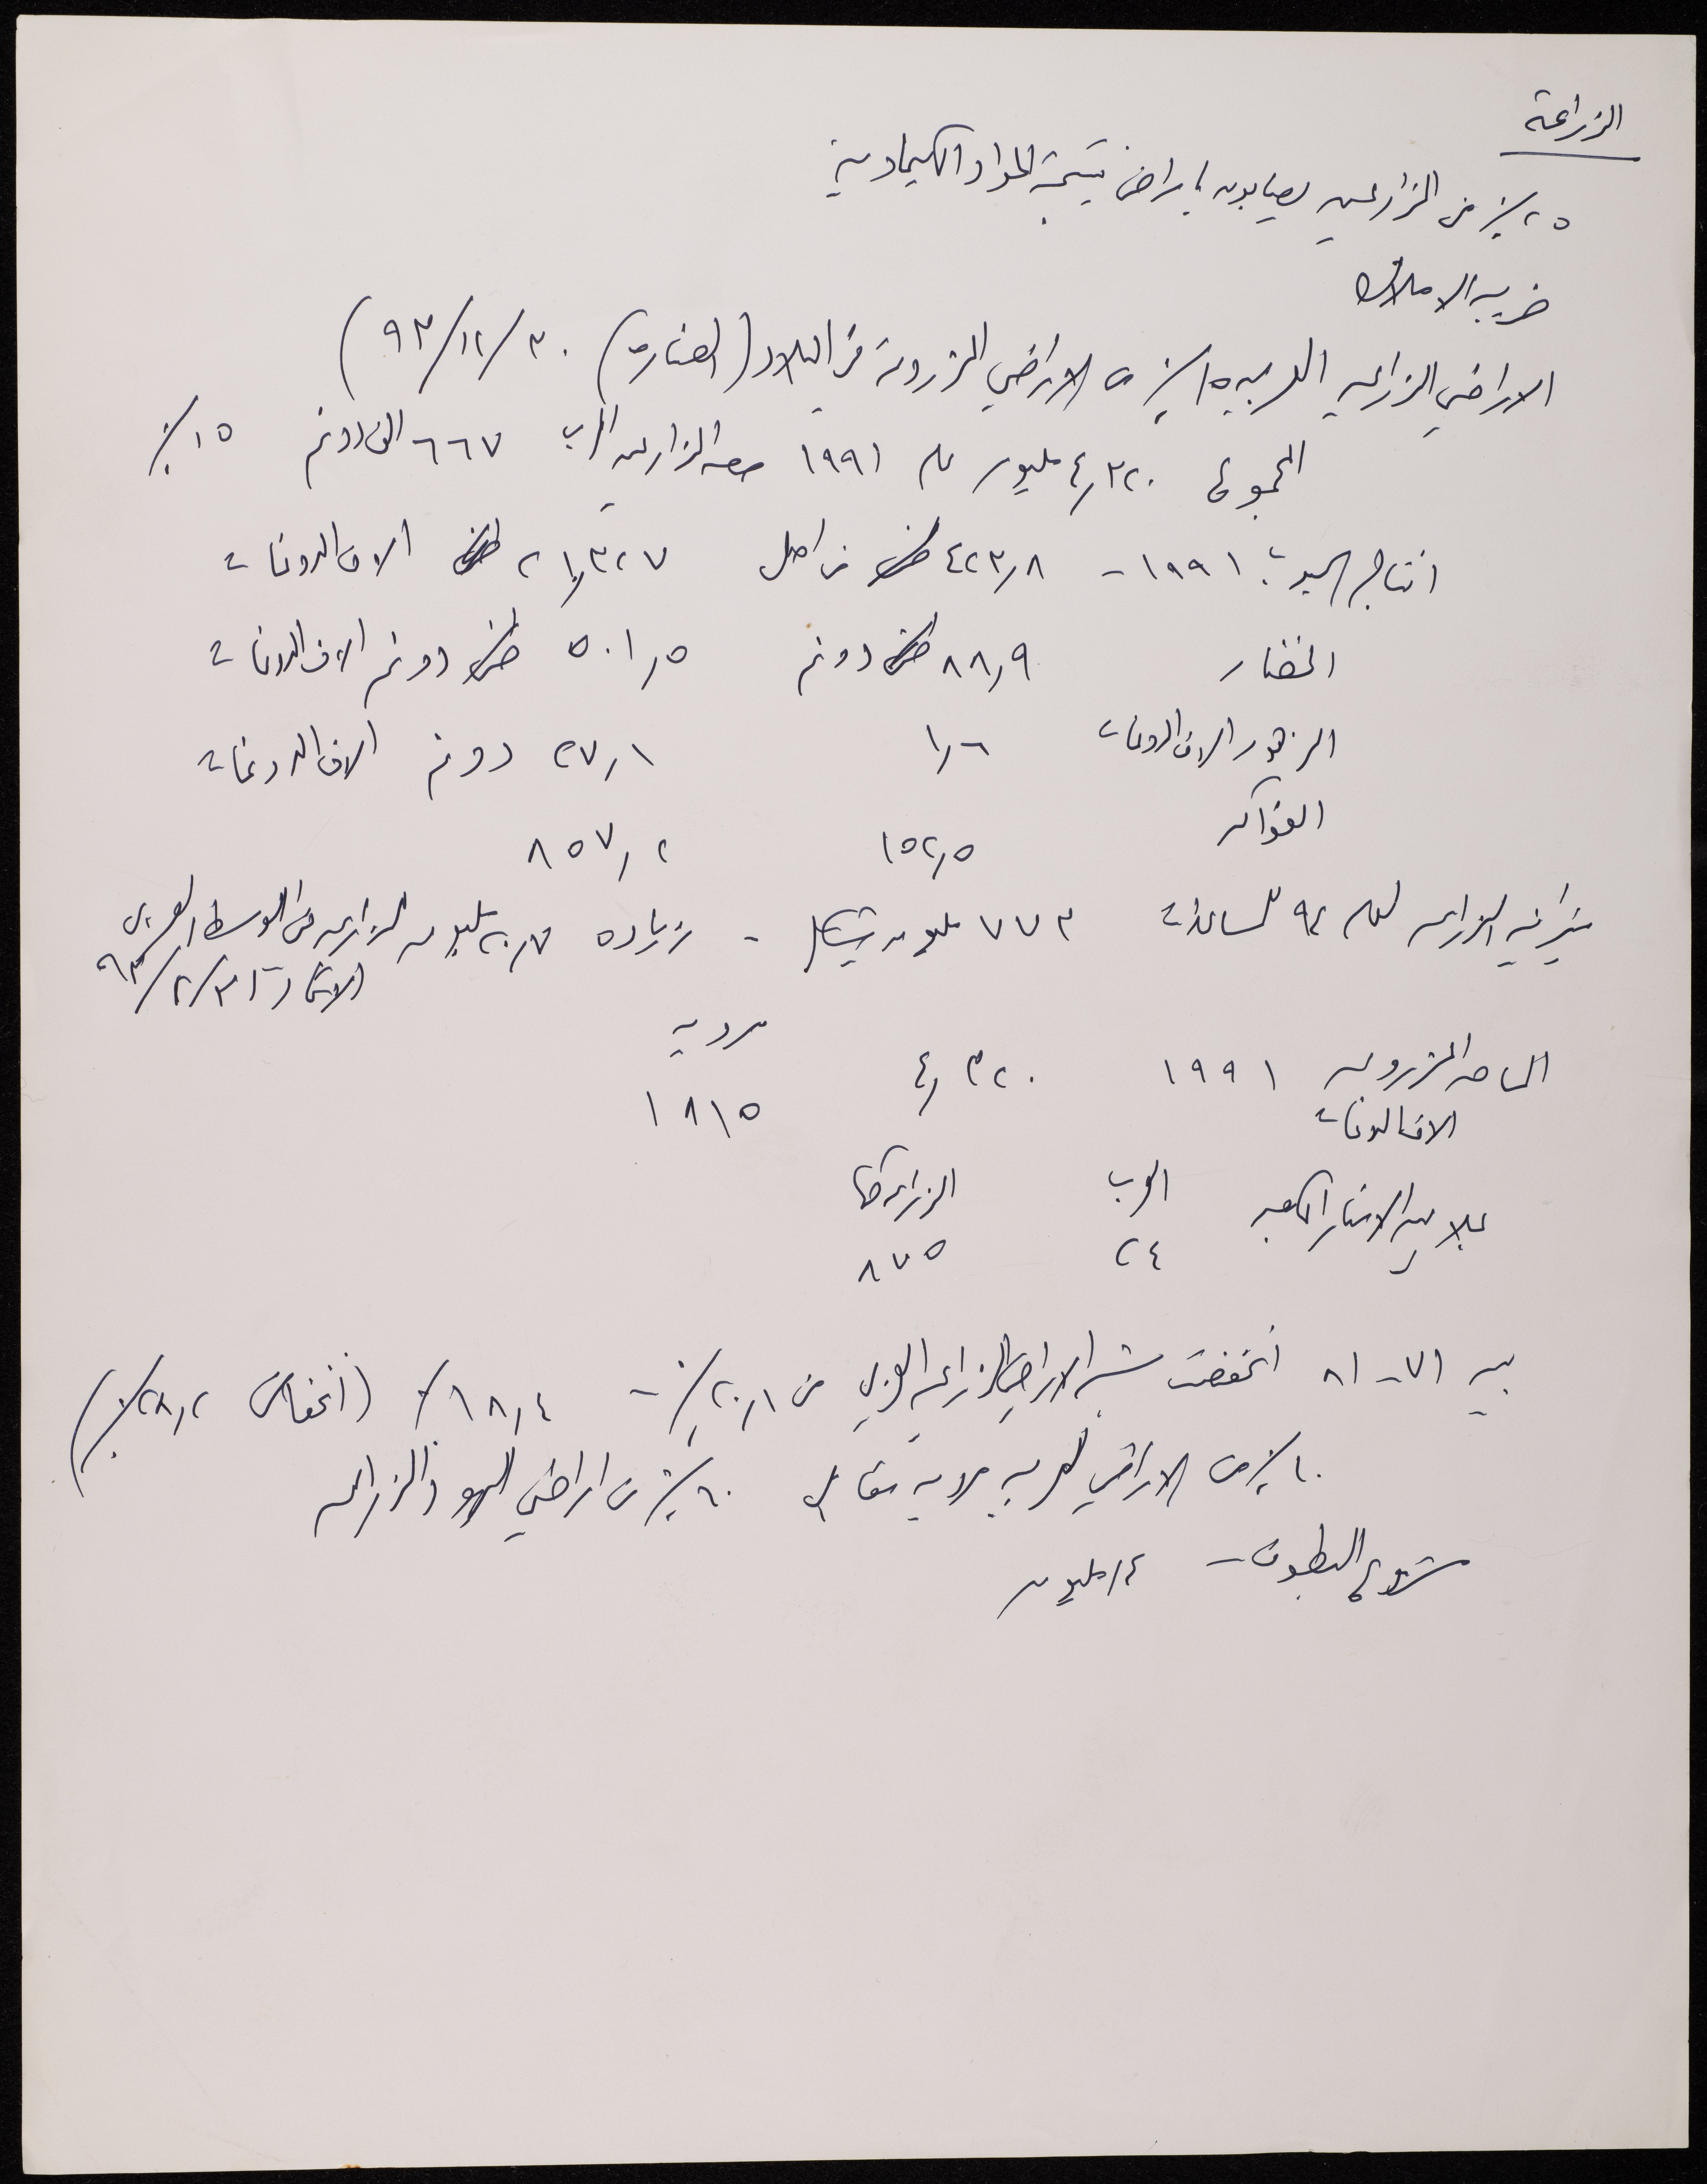 الزراعة
٢٥٪ من المزارعين يصابون بامراض نتيجة المواد الكيماوية
ضريبه الاملاك
الاراضي الزراعيه العربيه ١٥٪ من الاراضي المزروعة في البلاد (الصنارة) ٣٠/١٢/٩٣)
المجموع ٤,٣٢٠ مليون عام ١٩٩١ حصه المزارعين العرب ٦٦٧ الف دونم ١٥٪
انتاج الحبوب ١٩٩١ - ٤٢٣,٨ من اصل ٢١,٣٢٧ الاف الدونمات
الخضار ٨٨,٩ دونم ٥٠١,٥ دونم الاف الدونمات
الزهور الاف الدونمات ١,٦ ٢٧,١ دونم الاف الدونمات
الفواكه ١٥٢,٥ ٨٥٧,٢
ميزانيه الزراعه لعام ٩٤ للمساعدات ٧٧٣ مليون شيكل - زياده ٢٠,٧ مليون للزراعه في الوسط العربي
الاتحاد ٣١/٢/٩٣
المساحه المزروعه ١٩٩١ ٤,٣٢٠ مرويه
الاف الدونمات ١٨١٥
ملايين الامتار المكعبه العرب الزراعه كلها
٢٤ ٨٧٥
بين ٧١-٨١ انخفضت نسبه الاراضي الزراعيه العربي من ٢٠,١٪ - ١٨,٤٪ (انخفاض ٢٨,٢٪)
١٠٪ من الاراضي العربيه مرويه مقابل ٦٠٪ من اراضي اليهود الزراعه
مشروع البطوف - ١٤ مليون